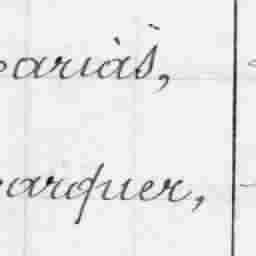 ariàs,
arquer,